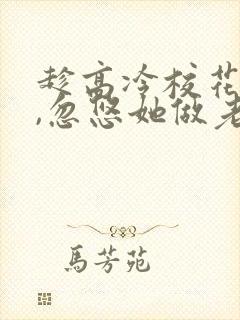 趁高冷校花
,忽悠她做老
馬芳苑